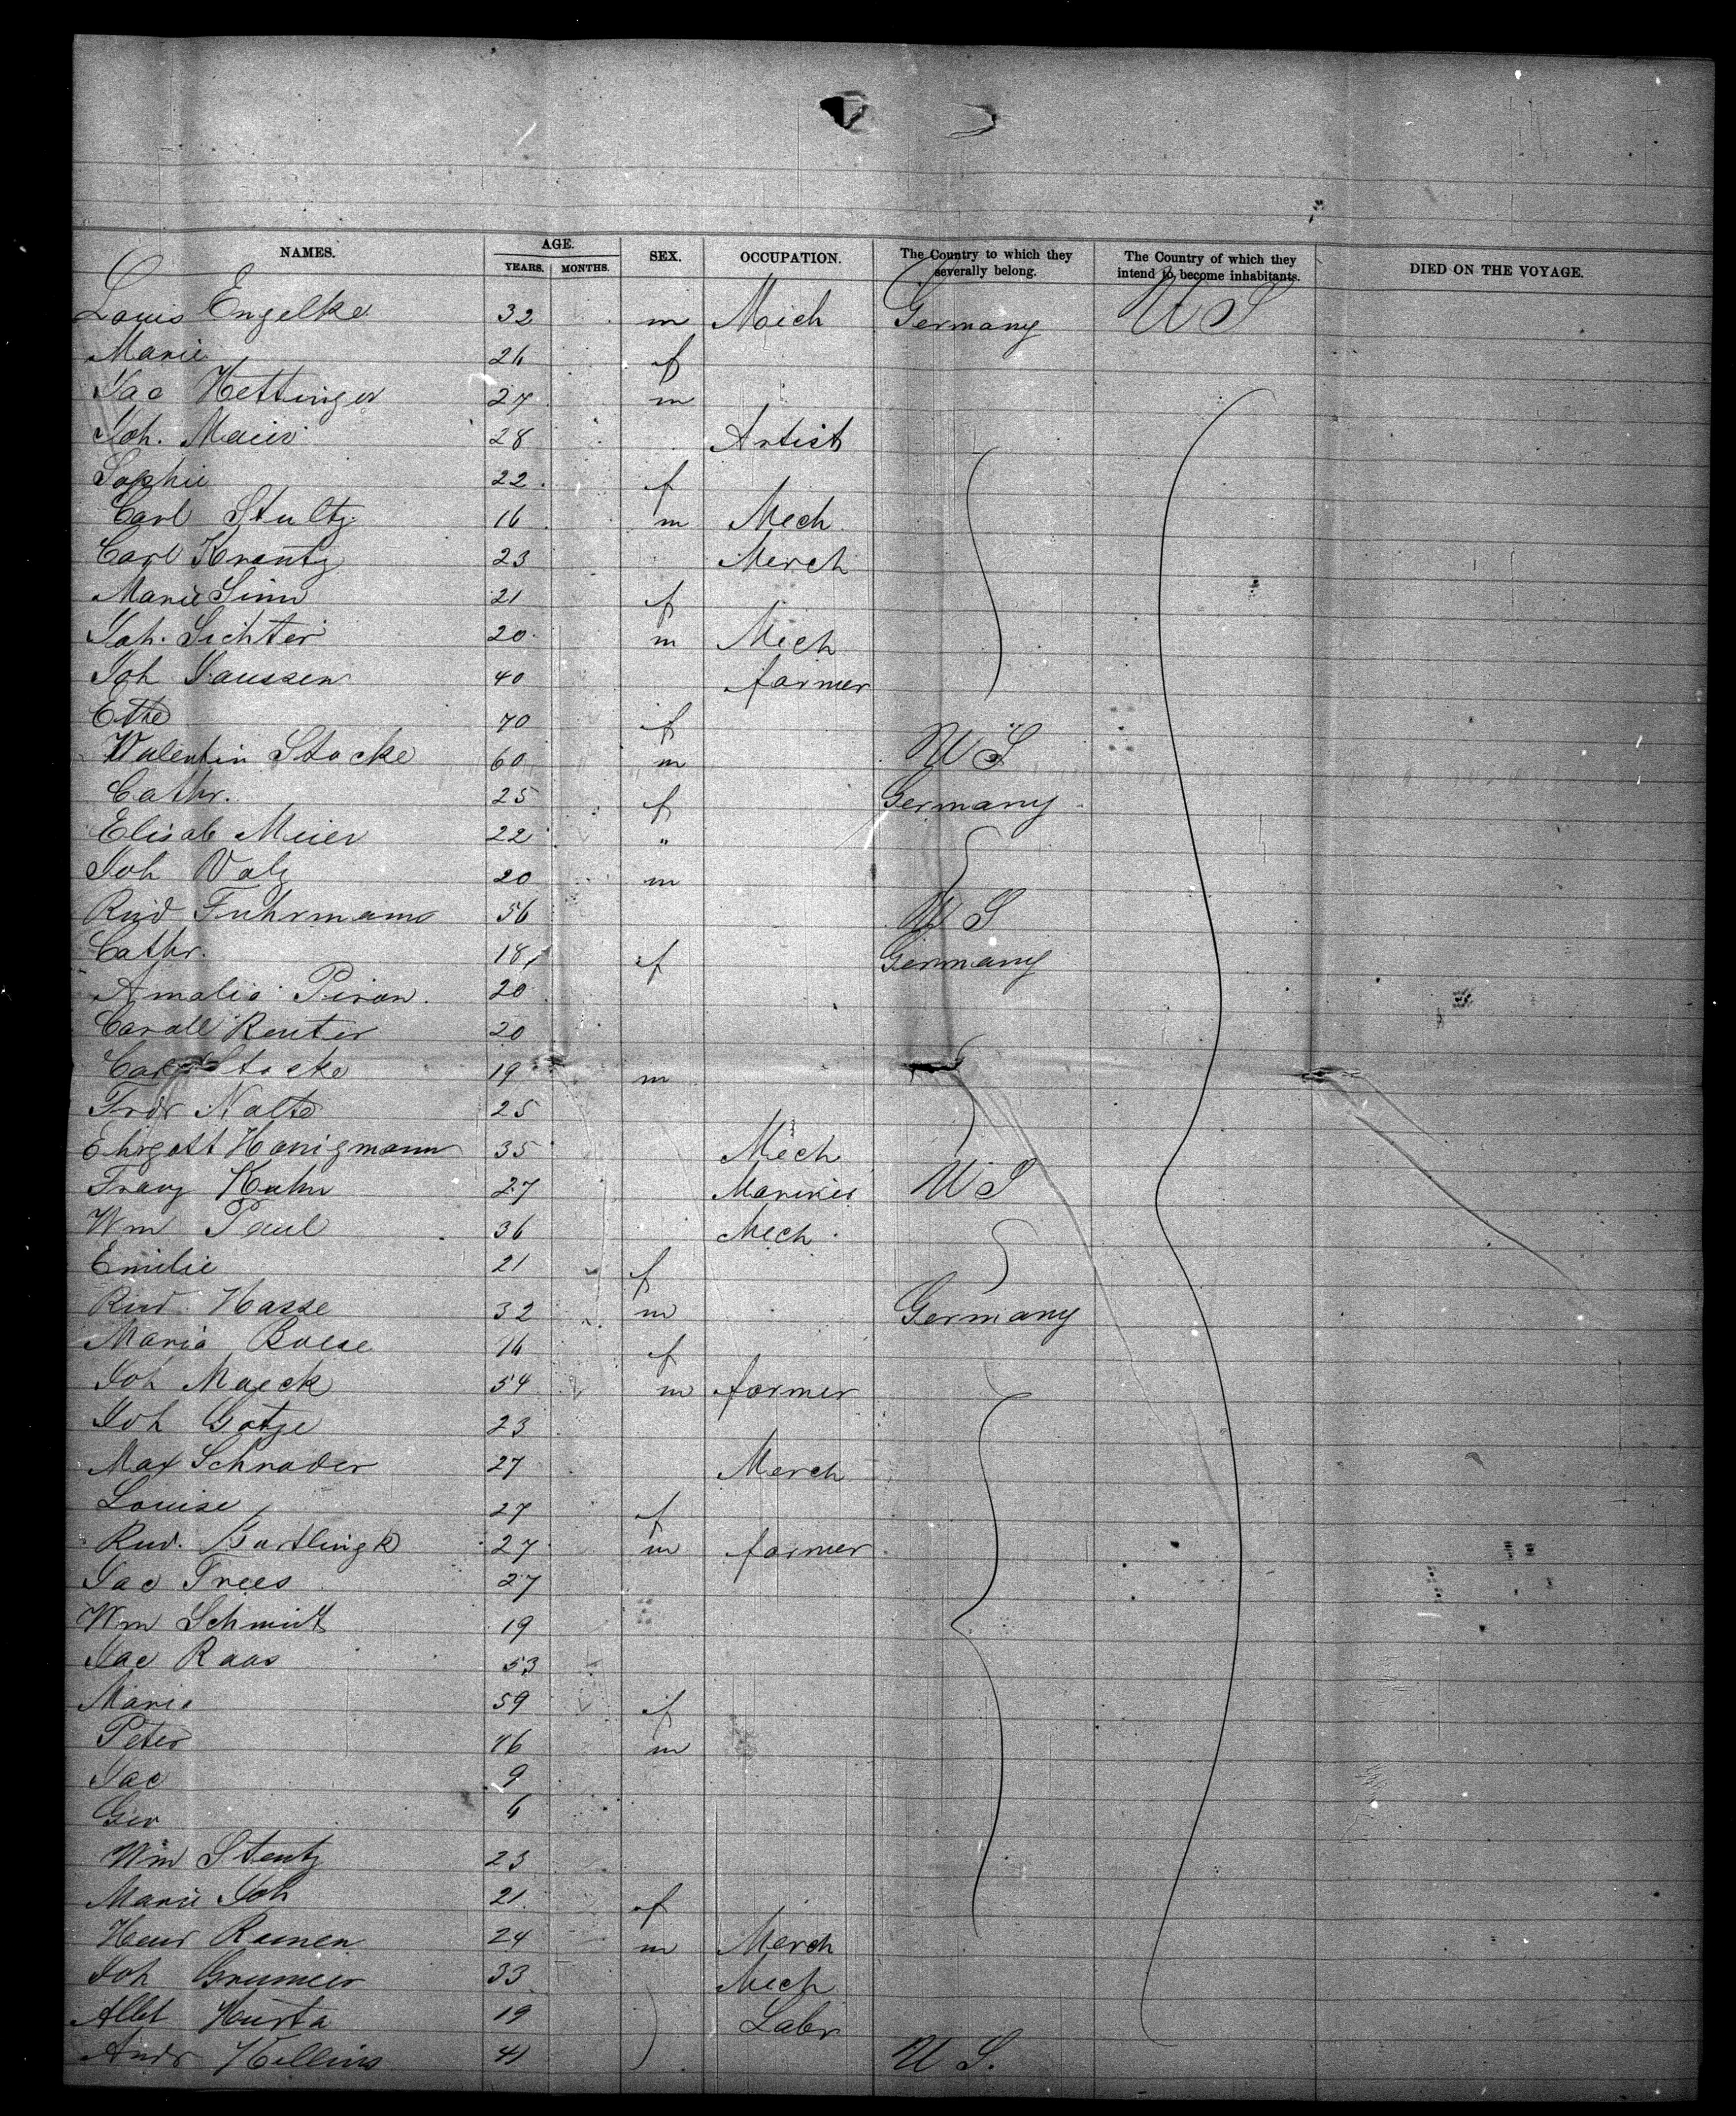 NAMES. AGE. SEX. OCCUPATION. The Country to which they severally belong. The Country of which they intend to become inhabitants. DIED ON THE VOYAGE.
YEARS. MONTHS.
Louis Engelke 32 m Mech Germany U S
Marie 26 f
Jac Hettinger 27 m
Joh. Maier 28 Artist
Sophie 22 f
Carl Stultz 16 m Mech
Carl Krantz 23 Merch
Marie Sinn 21 f
Joh. Lichter 20 m Mech
Joh Janssen 40 farmer
Etta 70 f
Valentin Stocke 60 m U S
Cathr. 25 f Germany
Elisab Meier 22 "
Joh Volz 20 m
Rud Fuhrmann 56 U S
Cathr. 18 f Germany
Amalia Piron. 20
Reuter 20
Carl Stocke 19 m
Frdr Nolte 25
Ehrgott Honigmann 35 Mech
Franz Kuhn 27 U S
Wm Paul 36 Mech
Emilie 21 f
Rud. Hasse 32 m Germany
Maria Boese 16 f
Joh Maeck 54 m farmer
Joh Gotze 23
Max Schrader 27 Merch
Louise 27 f
Rud. 27 m farmer
Jac Trees 27
Wm Schmidt 19
Jac Raas 53
Marie 59 f
Peter 16 m
Jac 9
6
Wm Stentz 23
Marie Joh 21 f
Heinr 24 m Merch
Joh 33 Mech
19 Labr
Andr 41 U S.